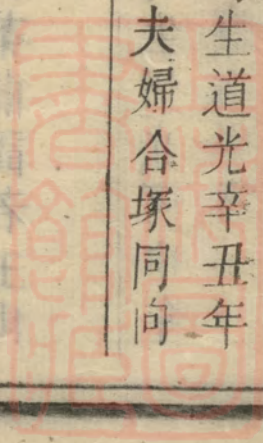 生道光辛丑年
夫婦合塚同向